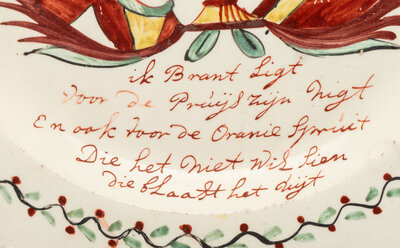 ik Brant Ligt
voor de Pruijs zijn Nigt
En ook voor de Oranie Spruit
Die het Niet Wil Sien
die blaast het uijt